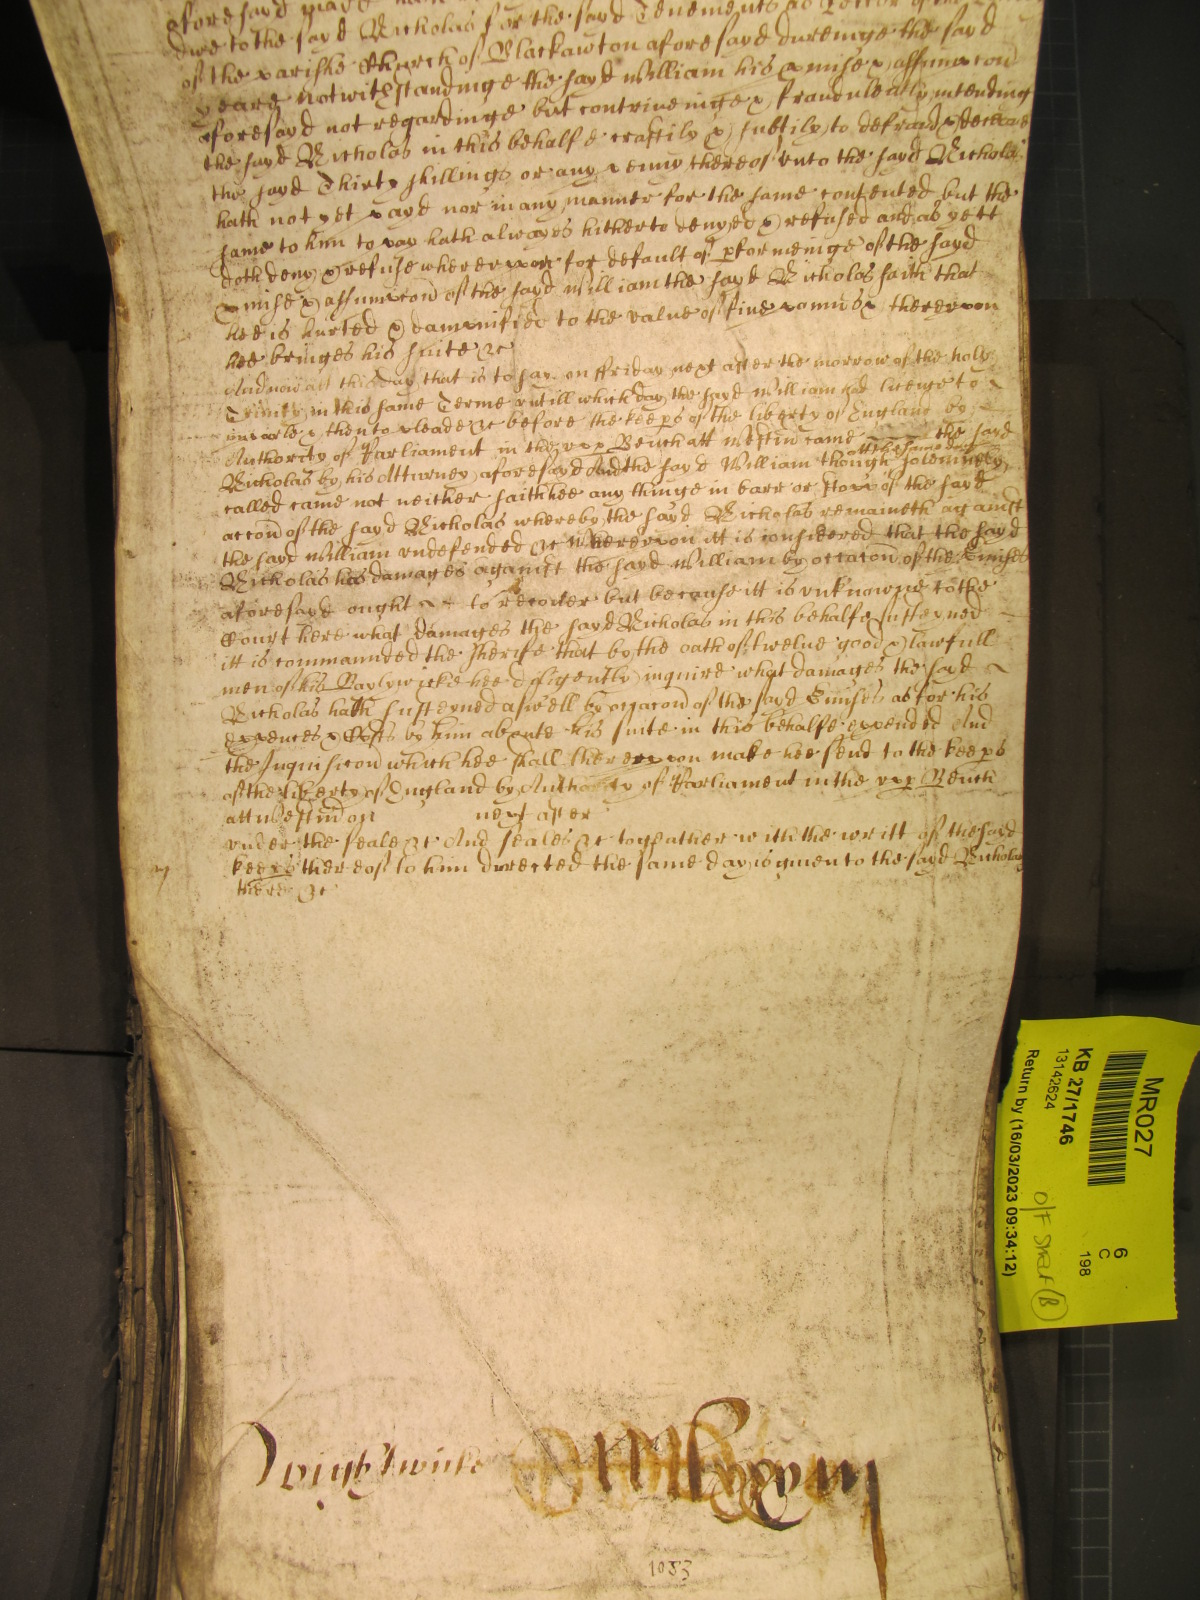 aforesayd
due to the sayd Nicholas for the sayd Tenements as Rector of the
of the parishe Church of Blackawton aforesayd dureinge the sayd
yeare notwithstandinge the sayd William his pmise & assumpcon
aforesayd not regardinge but contriveinge & fraudulently intending
the sayd Nicholas in this behalfe craftily & subtily to defraud & deceave
the sayd Thirty shillings or any penny thereof unto the sayd Nicholas
hath not yet payd nor in any manner for the same contented but the
same to him to pay hath alwayes hitherto denyed & refused and as yett
doth deny & refuse whereupon for default of pformeinge of the sayd
pmise & assumpcon of the sayd William the sayd Nicholas saith that
hee is hurted & dampnified to the value of five pounds & thereupon
hee bringes his suite &c
And now att this day that is to say on ffriday next after the morrow of the holy
Trinity in this same Terme untill which day the sayd William had licence to
imparle & then to pleade &c before the keeps of the liberty of England by
Authority of Parliament in the upp Bench att Westm came the sayd
Nicholas by his Atturney aforesayd And the sayd William though att the same day solemnely
called came not neither saith hee any thinge in barr or stopp of the sayd
accon of the sayd Nicholas whereby the sayd Nicholas remaineth against
the sayd William undefended &c Whereupon itt is considered that the sayd
Nicholas his damages against the sayd William by occacon of the pmises
aforesayd ought to recover but because itt is unknowne to the
Court here what damages the sayd Nicholas in this behalfe susteyned
itt is commaunded the Sherife that by the oath of twelve good & lawfull
men of his Baylywicke hee diligently inquire what damages the sayd
Nicholas hath susteyned aswell by occacon of the sayd pmises as for his
expences & Costs by him aboute his suite in this behalfe expended And
the Inquisicon which hee shall thereupon make hee send to the keeps
of the liberty of England by Authority of Parliament in the upp Bench
att Westm on next after
under the seale &c And seales &c togeather with the writt of the sayd
keeps thereof to him directed the same day is given to the sayd Nicholas
there &c
Wightwicke
1053
MR027
KB 27/1746
13142624
Return by (16/03/2023 09:34:12)
6
C
198
O/F Shelf (B)